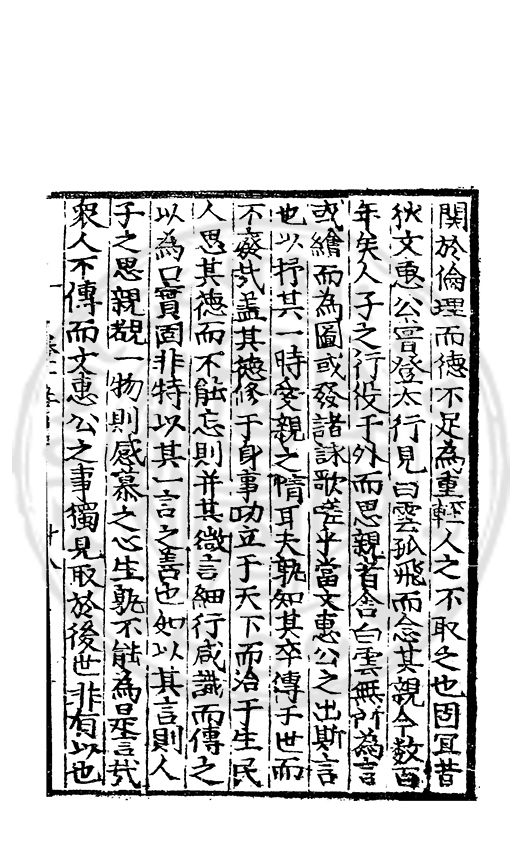 關於倫理而德不足為重輕人之不取之也固宜昔
狄文惠公嘗登太行見白雲孤飛而念其親今數百
年矣人子之行役于外而思親者舍白雲無所為言
或繪而為圖或發諸詠歌嗟乎當文惠公之出斯言
也以抒其一時愛親之情耳夫孰知其卒傳于世而
不廢哉蓋其德修于身事功立于天下而治于生民
人思其德而不能忘則并其微言細行咸識而傳之
以為口實固非特以其一言之善也如以其言則人
子之思親覩一物則感慕之心生孰不能為是言哉
眾人不傳而文惠公之事獨見取於後世非有以也